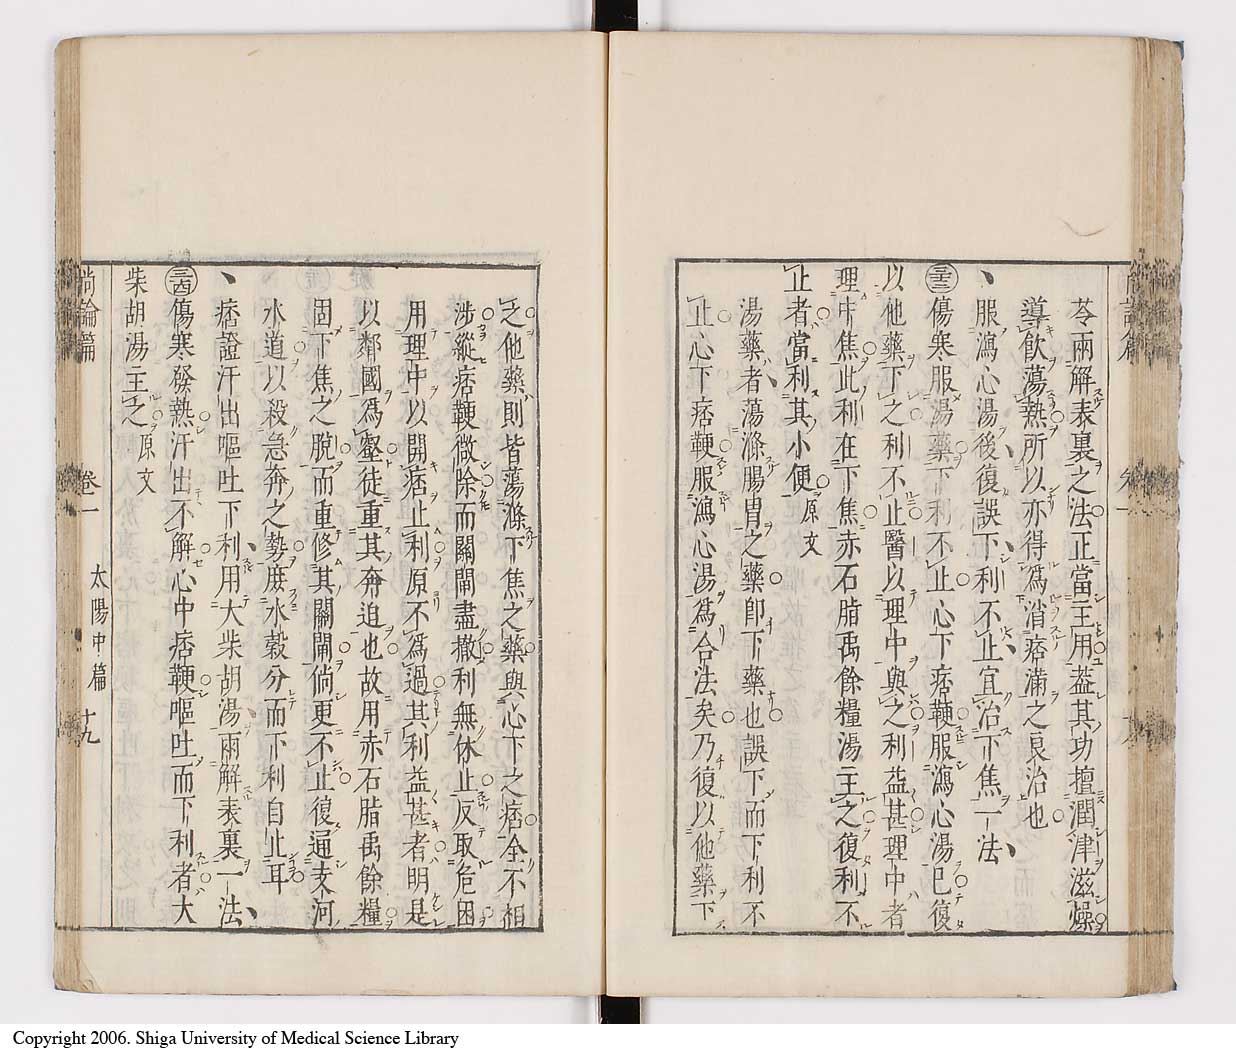 苓兩解表裏之法正當主用葢其功擅潤津滋燥
導飲蕩熱所以亦得爲消痞滿之良治也
服瀉心湯後復誤下利不止宜治下焦一法
傷寒服湯藥下利不止心下痞鞕服瀉心湯已復
以他藥下之利不止醫以理中與之利益甚理中者
理中焦此利在下焦赤石脂禹餘糧湯主之復利不
止者當利其小便原文
湯藥者蕩滌腸胃之藥卽下藥也誤下而下利不
止心下痞鞕服瀉心湯爲合法矣乃復以他藥下
之他藥則皆蕩滌下焦之藥與心下之痞全不相
涉縱痞鞕微除而關閘盡撤利無休止反取危困
用理中以開痞止利原不爲過其利益甚者明是
以鄰國爲壑徒重其奔迫也故用赤石脂禹餘糧
固下焦之脫而重修其關閘倘更不止復通支河
水道以殺急奔之勢庶水穀分而下利自止耳
三四傷寒發熱汗出不解心中痞鞕嘔吐而下利者大
痞證汗出嘔吐下利用大柴胡湯兩解表裏一法
柴胡湯主之原文
尚論篇 卷一 太陽中篇 十九
Copyright 2006. Shiga University of Medical Science Library